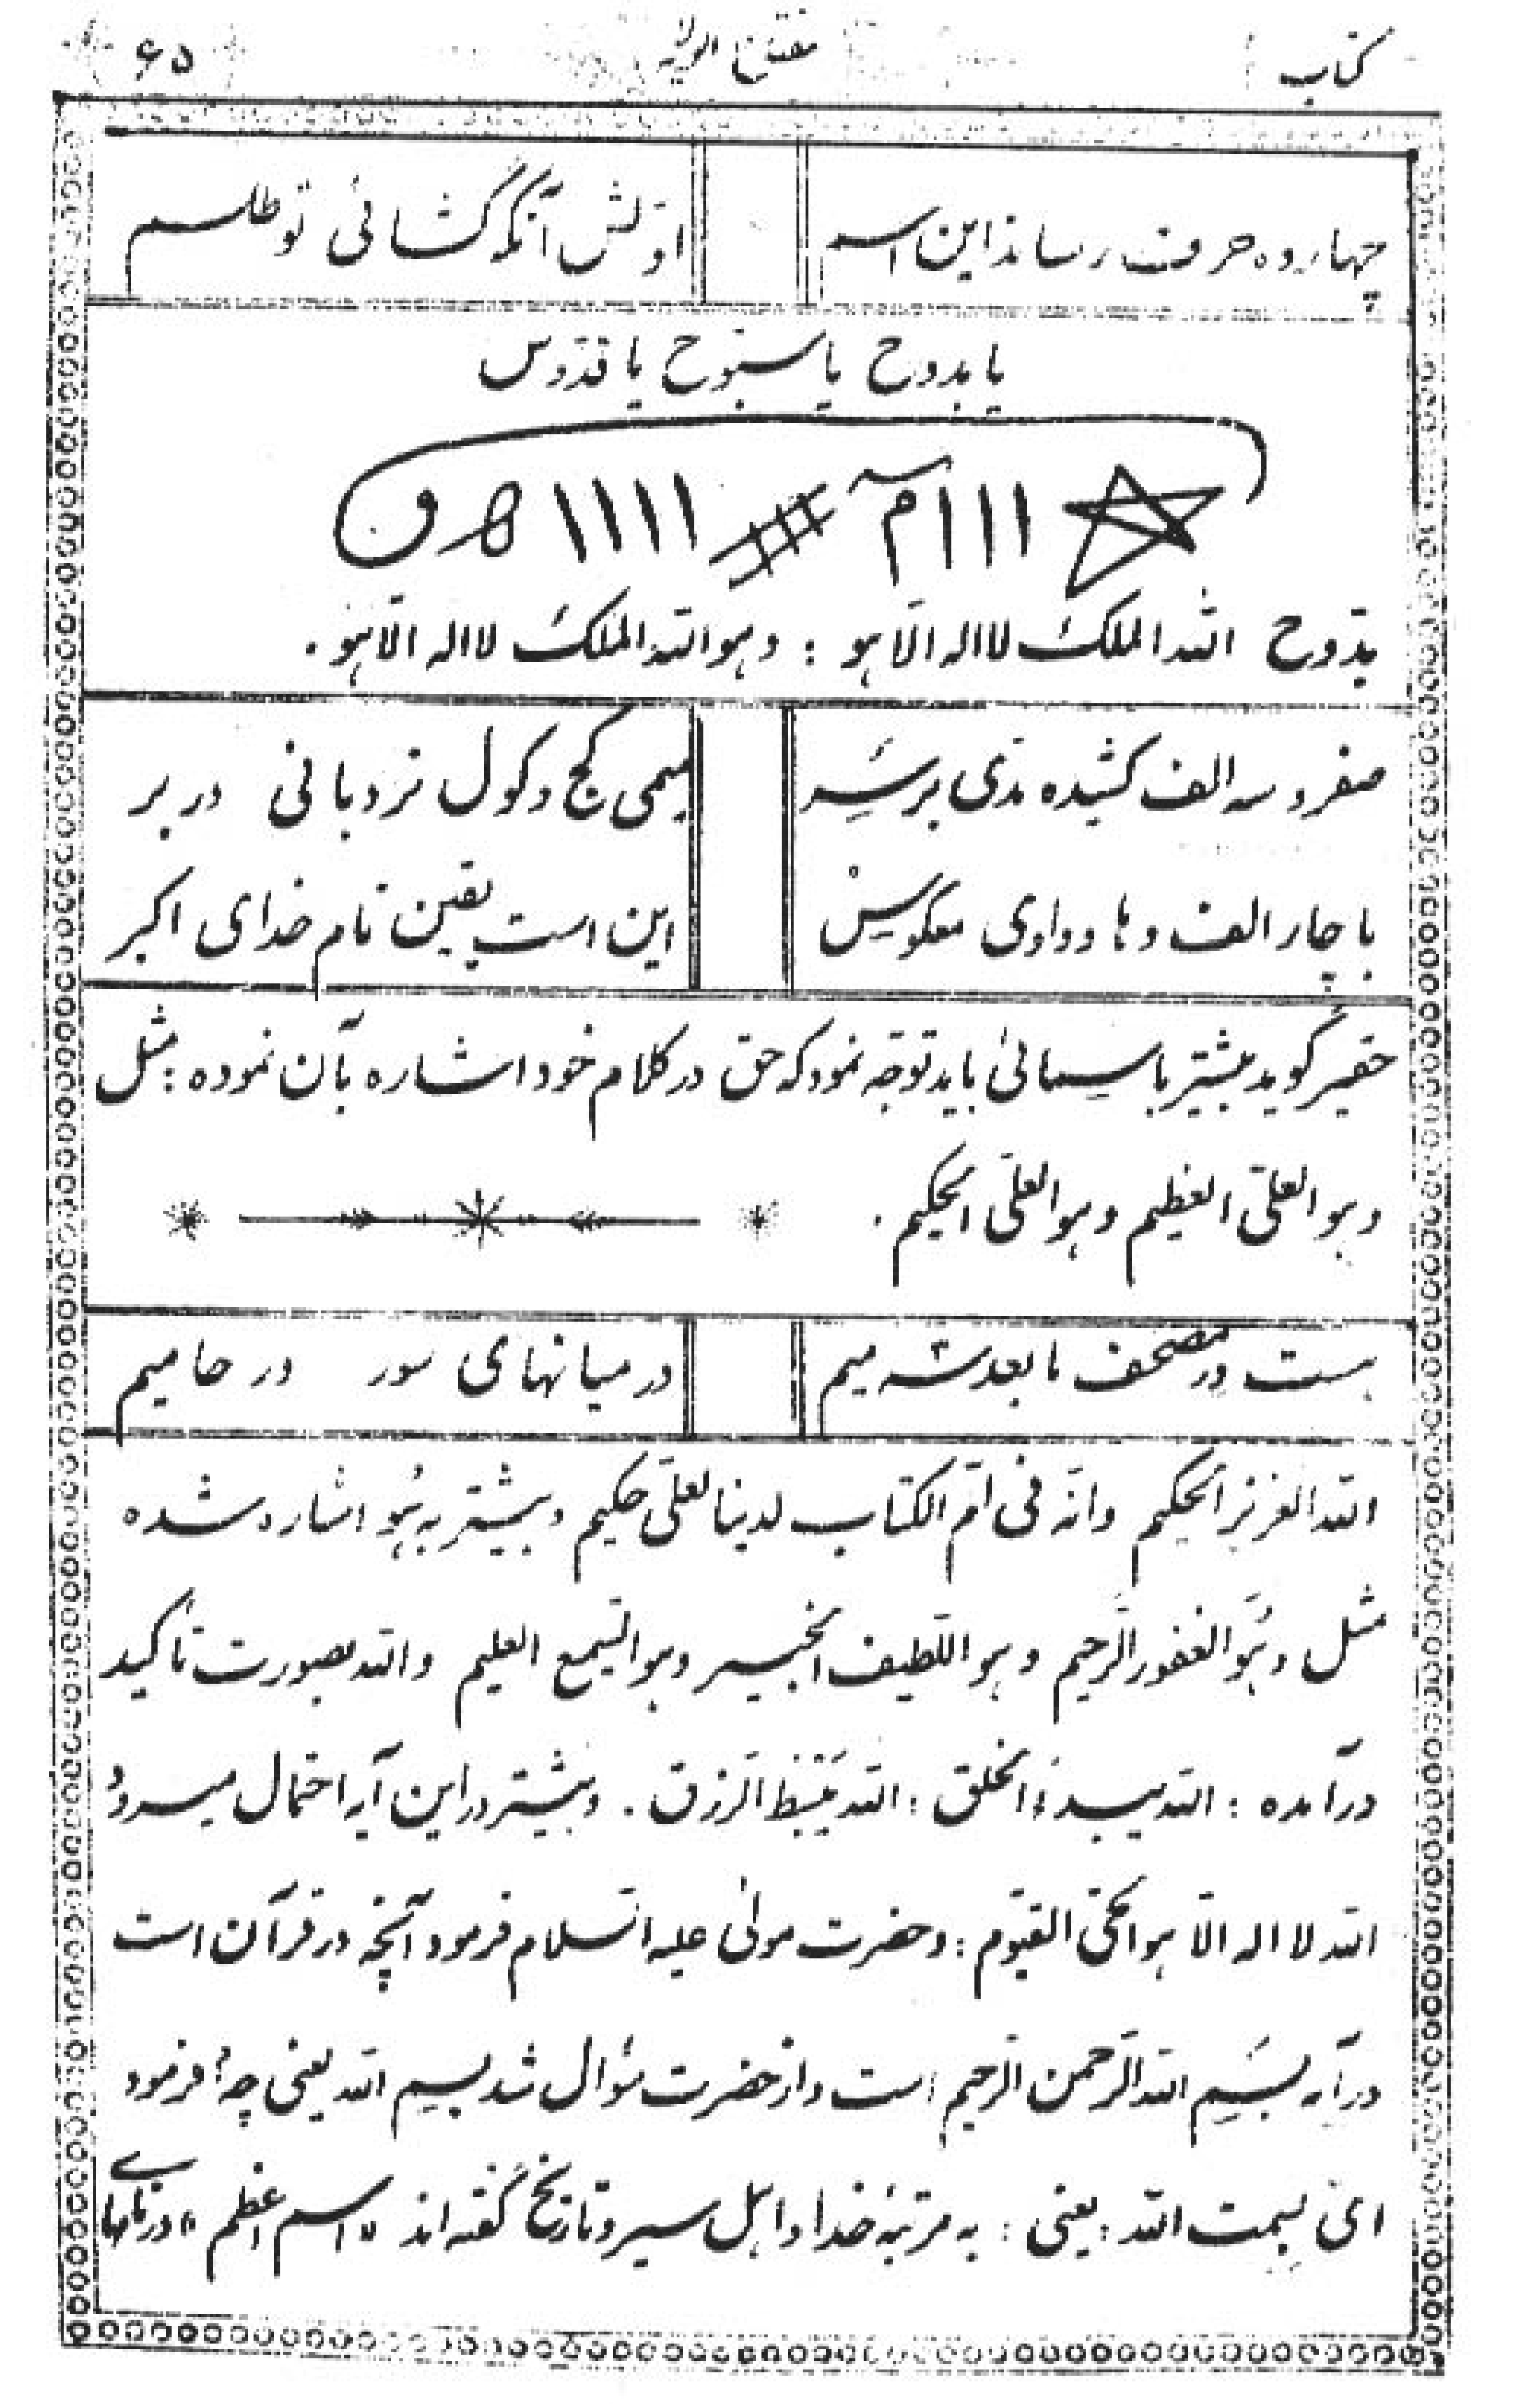 کتاب مفتاح الولایه ۶۵
چهارده حرف رساند این اسم اوّلش آنکه گشائی تو طلسم
یا بدوح یا سبّوح یا قدّوس
☆ ااا م # اااا ه و
بدّوح الله الملک لا اله الّا هو : و هو الله الملک لا اله الّا هو .
صفر و سه الف کشیده مدّی بر سَر میمی کج و کول نردبانی در بر
با چار الف و ها و واوی معکوسْ این است یقین نام خدای اکبر
حقیر گوید بیشتر باسمائی باید توجّه نمود که حق در کلام خود اشاره بآن نموده : مثل
و هو العلیّ العظیم و هو العلیّ الحکیم .
هست در مصحف ما بعد سه میم در میانهای سور در حامیم
الله العزیز الحکیم و انّه فی امّ الکتاب لدینا لعلیّ حکیم و بیشتر به هُو اشاره شده
مثل و هُوَ الغفور الرّحیم و هو اللّطیف الخبیر و هو السّمیع العلیم و الله بصورت تأکید
درآمده : الله یبدءُ الخلق : الله یَبْسُط الرّزق . و بیشتر در این آیه احتمال میرود
الله لا اله الّا هو الحیّ القیّوم : و حضرت مولیٰ علیه السّلام فرمود آنچه در قرآن است
در آیه بِسَمِ الله الرّحمن الرّحیم است و از حضرت سؤال شد بسم الله یعنی چه؟ فرمود
ای بِسِمت الله : یعنی : به مرتبهٔ خدا و اهل سیر و تاریخ گفته‌اند «اسم اعظم» در نامهای